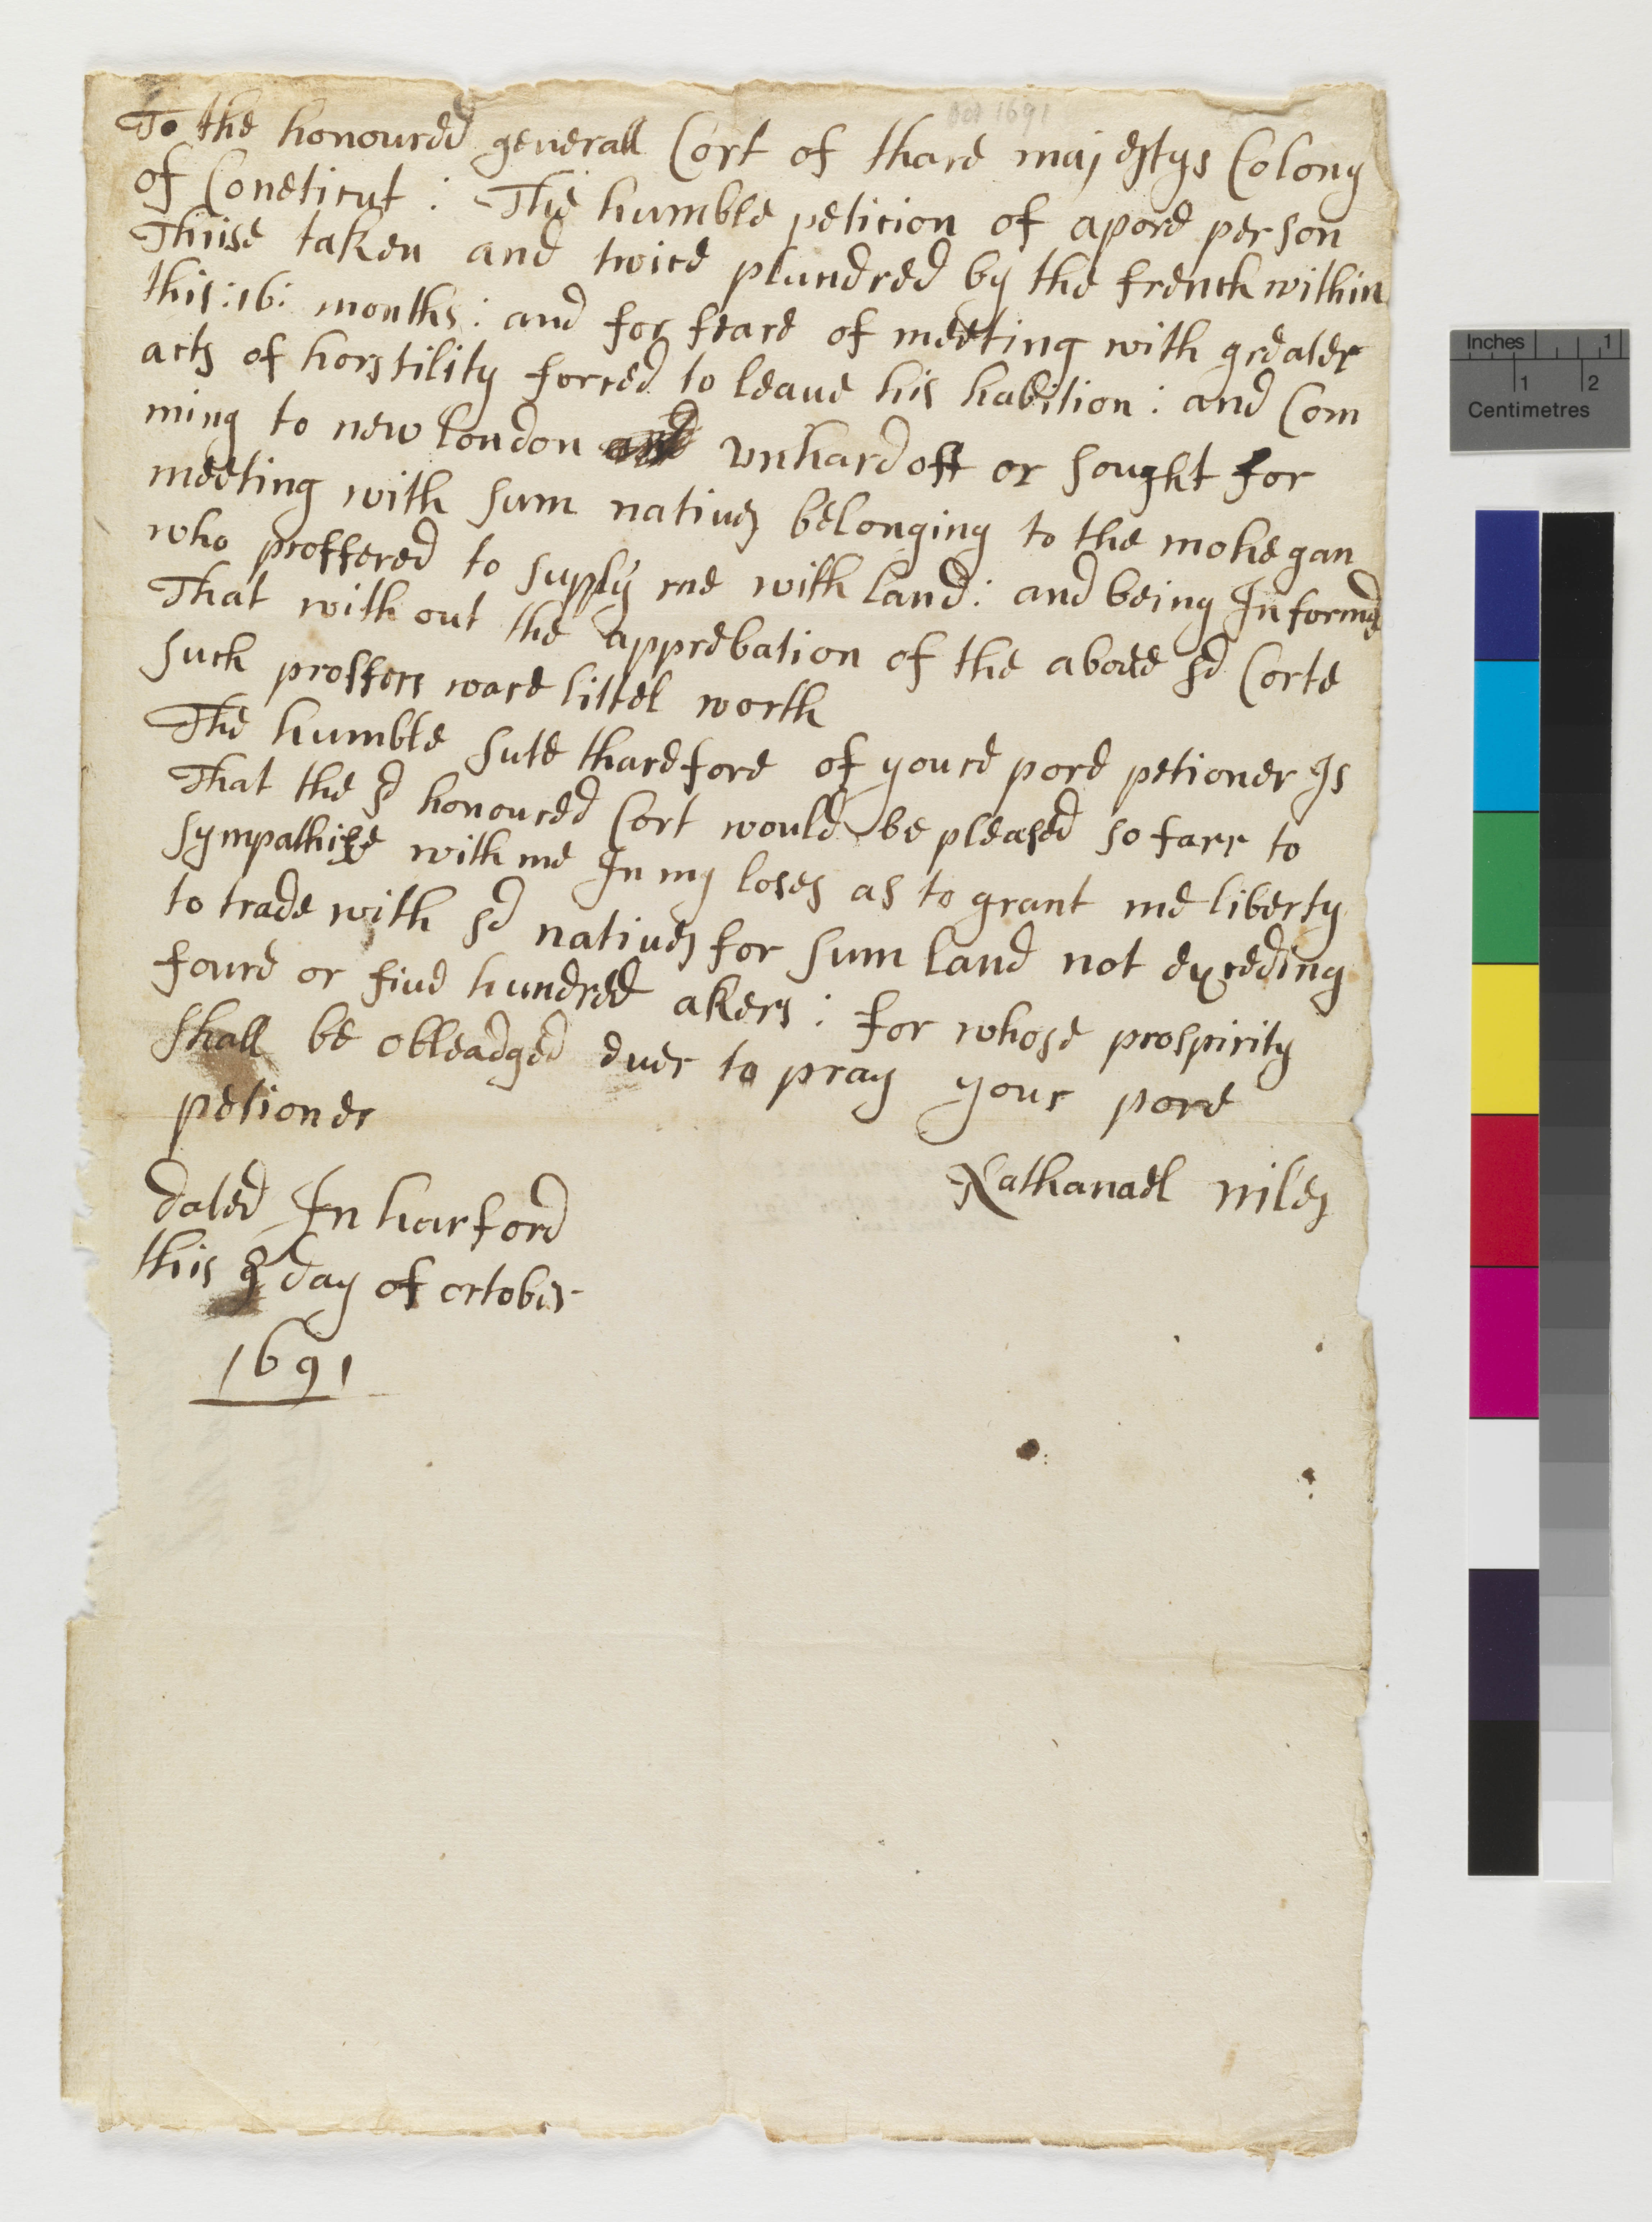 Oct 1691
To the honoured generall Cort of thare majestys Colony
of Coneticut : The humble peticion of apore person
Thrise taken and twice plundred by the french within
this :16: months : and for feare of meeting with greater
acts of horstility forced to leave his habition : and Com
ming to new london and vnhard off or sought for
meeting with sum natives belonging to the mohegan
who proffered to supply me with land : and being Informd
That with out the apprebation of the above sd Corte
such proffers ware littel worth
The humble sute thareford of youre pore petioner Is
That the sd honoured Cort would be pleased so farr to
sympathise with me In my loses as to grant me liberty
to trade with sd natives for sum land not exceding
foure or five hundred akers : for whose prospirity
shall be obleadged ever to pray your pore
petioner
Nathanael niles
dated In harford
this 9 day of october
1691
Inches 1
1 2
Centimetres